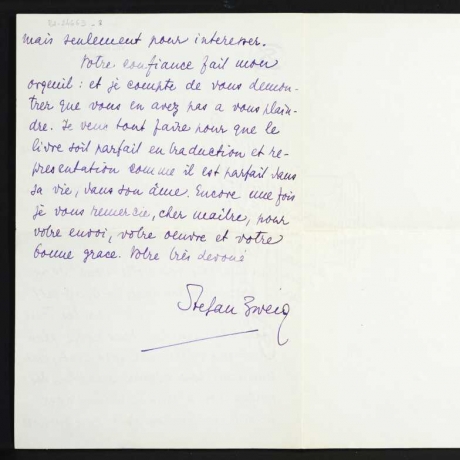 mais seulement pour interesser.
Votre confiance fait mon
orgeuil : et je compte de vous demon-
trer que vous en avez pas a vous plain-
dre. Je veux tout faire pour que le
livre soit parfait en traduction et re-
presentation comme il est parfait dans
sa vie, dans son âme. Encore une fois
je vous remercie, cher maître, pour
votre envoi, votre oeuvre et votre
bonne grace. Votre très devoué
Stefan Zweig